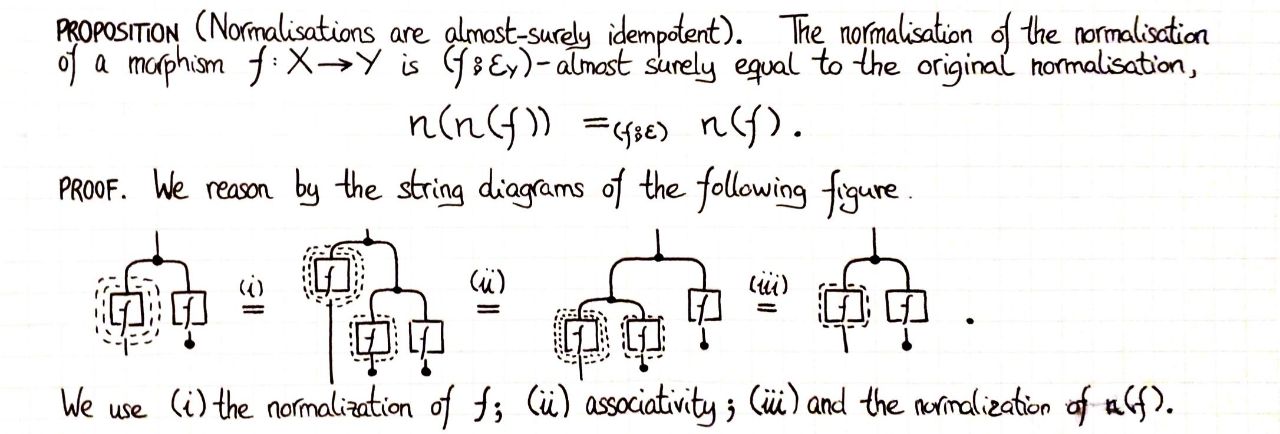 PROPOSITION (Normalisations are almost-surely idempotent). The normalisation of the normalisation
of a morphism f : X → Y is (f ⨟ ε_Y)-almost surely equal to the original normalisation,
n(n(f)) =_(f⨟ε) n(f).
PROOF. We reason by the string diagrams of the following figure.
f f (i) = f f f (ii) = f f f (iii) = f f .
We use (i) the normalization of f; (ii) associativity; (iii) and the normalization of n(f).